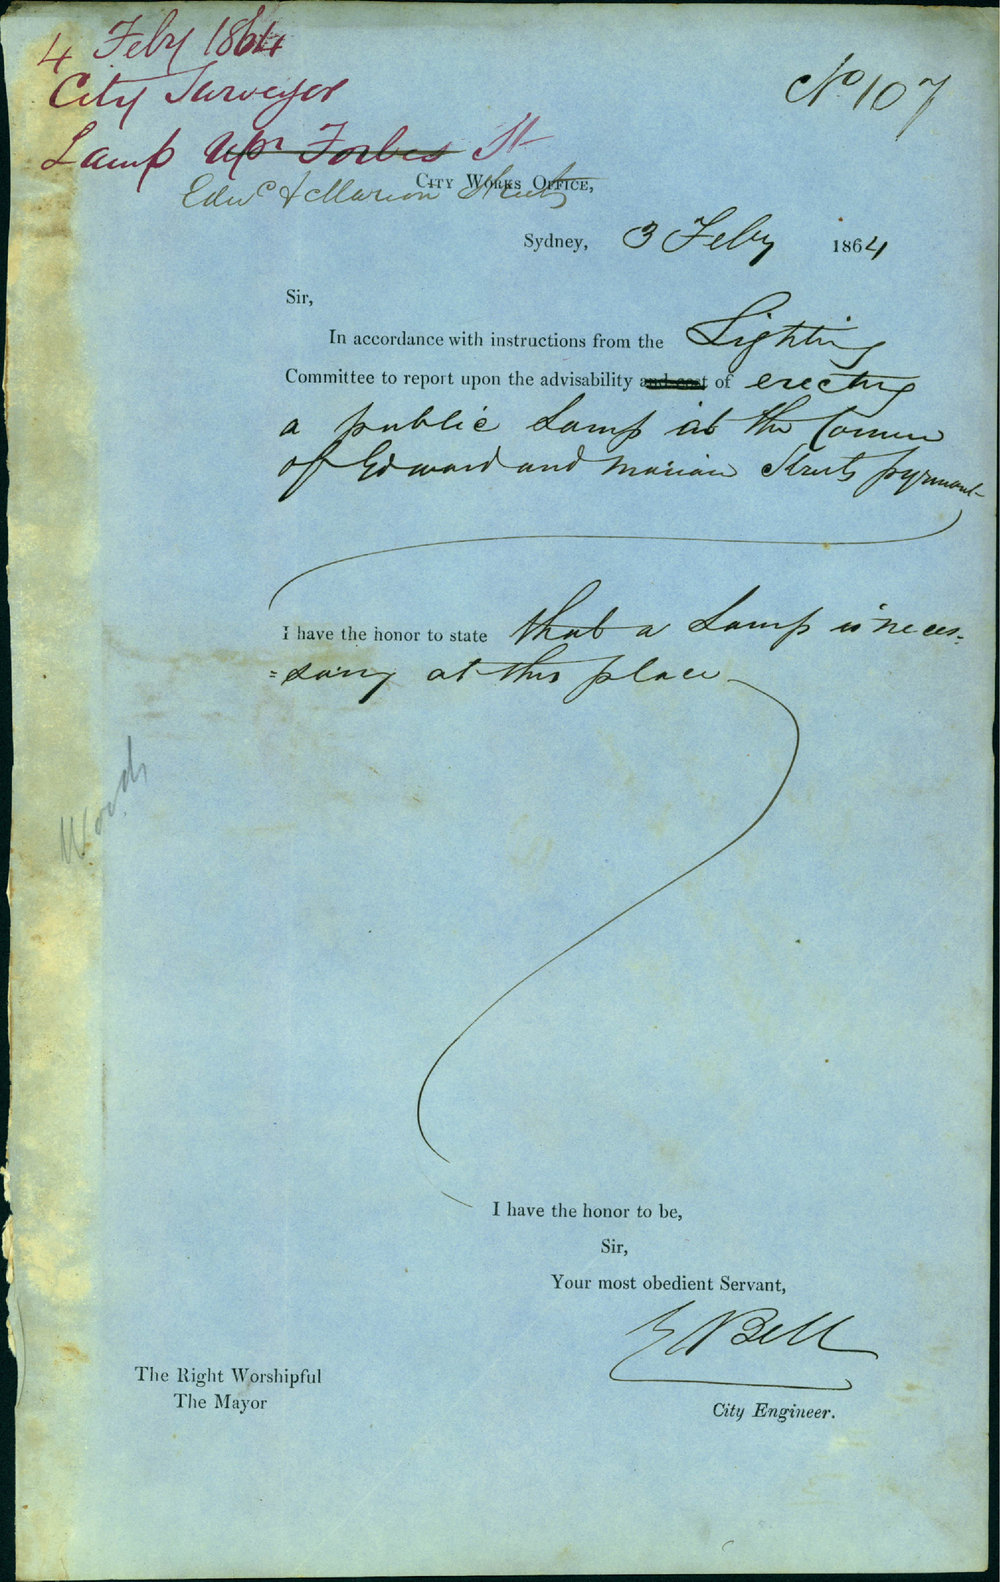 4 Feby 1864
City Surveyor
Lamp Upr Forbes St
Edwd & Marion Streets
No 107
CITY WORKS OFFICE,
Sydney, 3 Feby 1864
Sir,
In accordance with instructions from the Lighting
Committee to report upon the advisability and cost of erecting
a public Lamp at the Corner
of Edward and Marian Streets pyrmont
I have the honor to state that a Lamp is neces-
=sary at this place
I have the honor to be,
Sir,
Your most obedient Servant,
E Bell
City Engineer.
The Right Worshipful
The Mayor